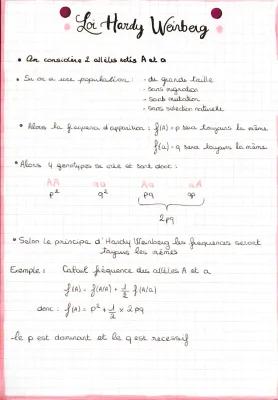 Loi Hardy Weinberg
• On considère 2 allèles notés A et a
• Si on a une population : - de grande taille
- sans migration
- sans mutation
- sans sélection naturelle
• Alors la fréquence d'apparition : f(A) = p sera toujours la même
f(a) = q sera toujours la même
• Alors 4 génotypes se crée et sont donc :
AA aa Aa aA
p² q² pq qp
2pq
• Selon le principe d'Hardy Weinberg les fréquences seront
toujours les mêmes
Exemple : Calcul fréquence des allèles A et a
f(A) = f(A/A) + 1/2 f(A/a)
donc : f(A) = p² + 1/2 × 2pq
- le p est dominant et le q est recessif